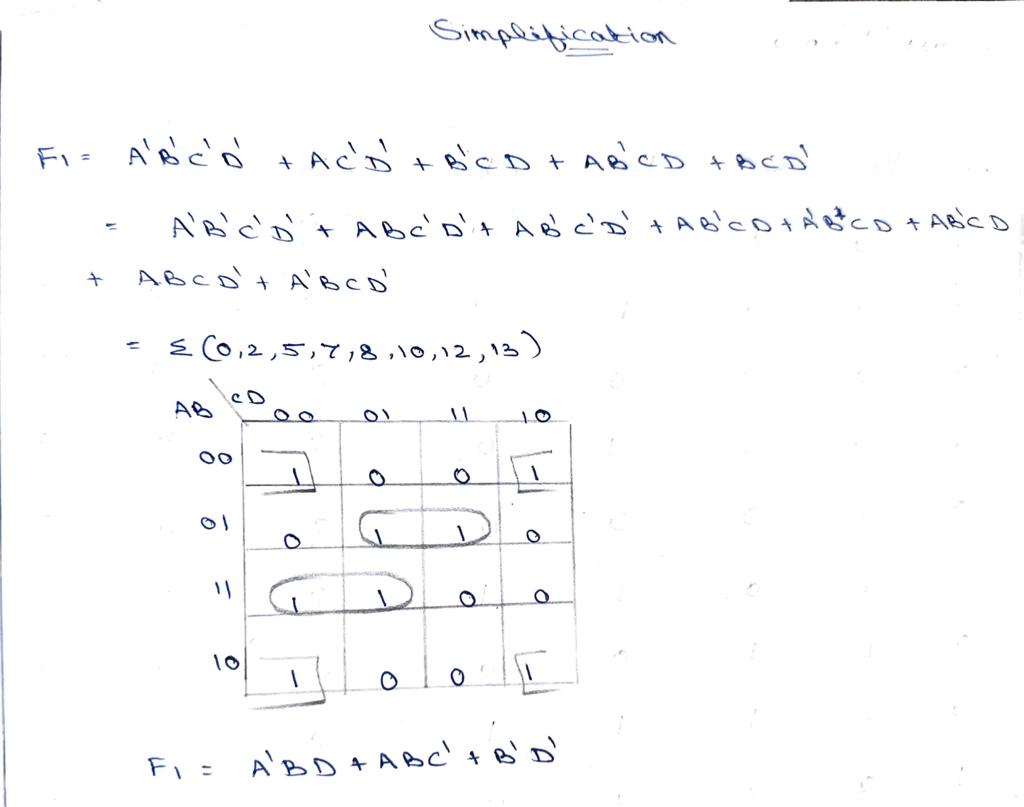 Simplification
F1 = A'B'C'D' + AC'D' + B'CD + AB'CD + BCD'
= A'B'C'D' + ABC'D' + AB'C'D' + AB'CD + A'B'CD + AB'CD
+ ABCD' + A'BCD'
= Σ(0,2,5,7,8,10,12,13)
AB \ CD 00 01 11 10
00 1 0 0 1
01 0 1 1 0
11 1 1 0 0
10 1 0 0 1
F1 = A'BD + ABC' + B'D'